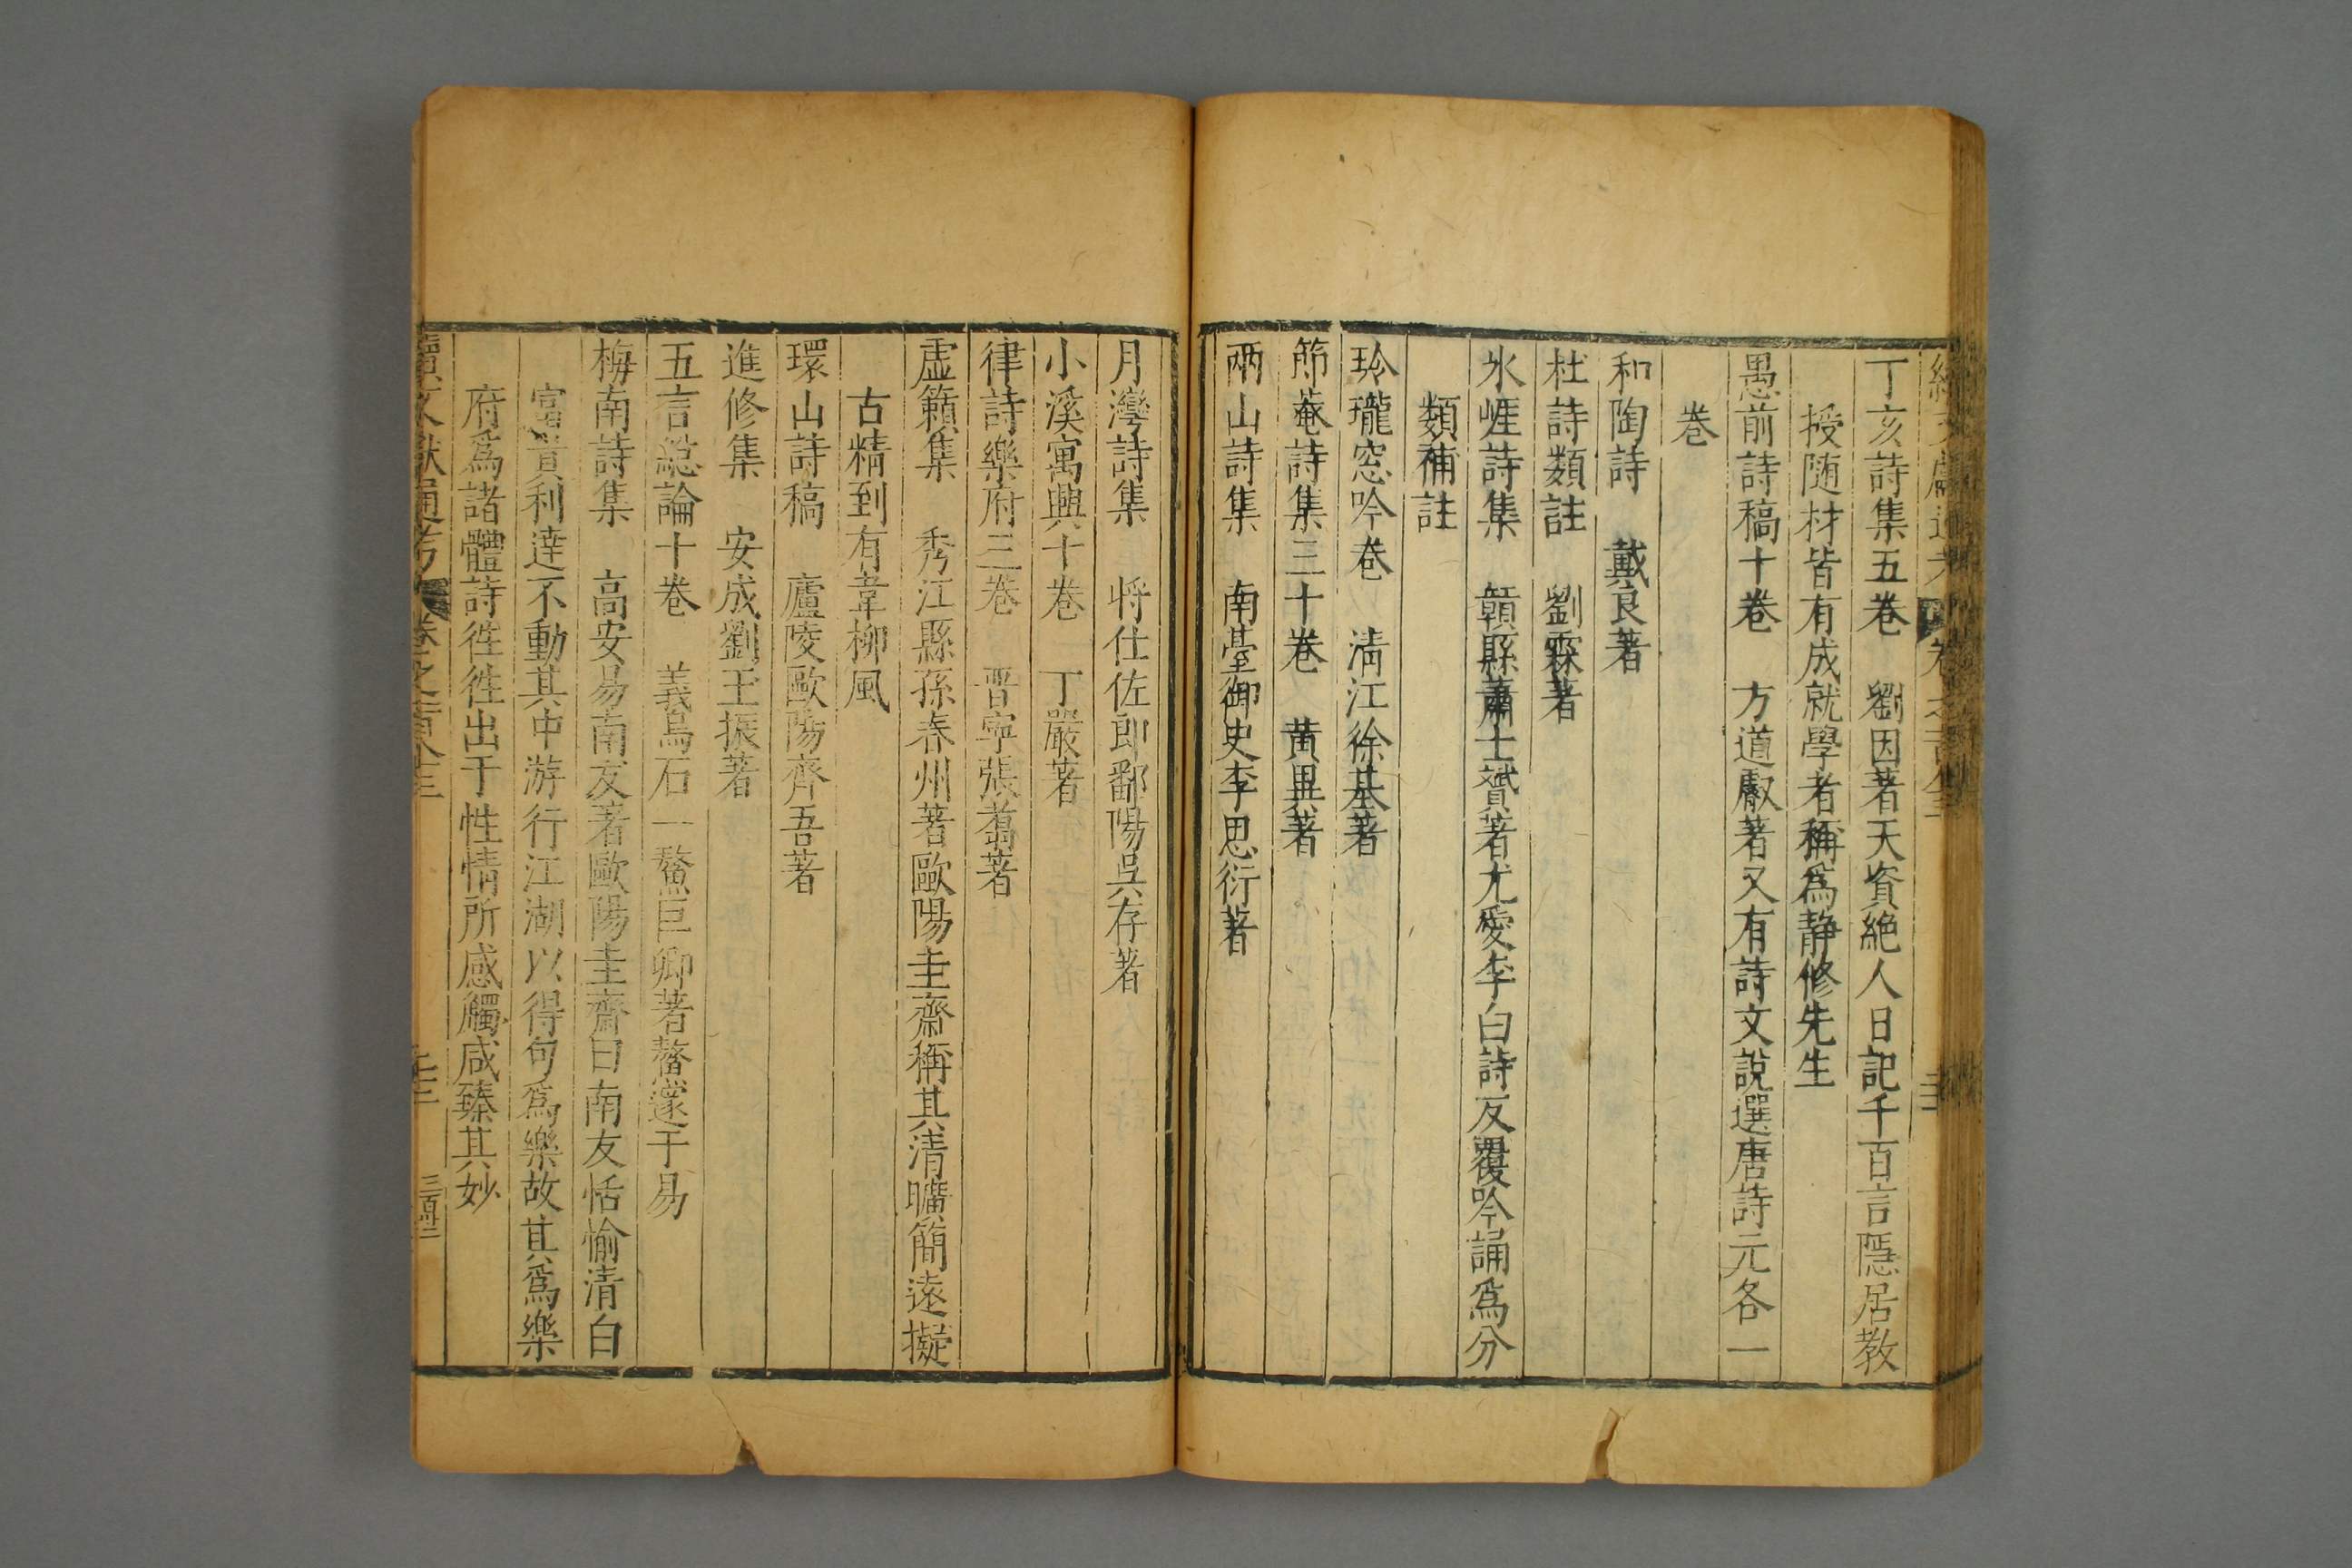 丁亥詩集五卷 劉因著天資絶人日記千百言隱居教
授随材皆有成就學者稱爲静修先生
愚前詩稿十卷 方道叡著又有詩文說選唐詩元各一
卷
和陶詩 戴良著
杜詩類註 劉霖著
氷崕詩集 贑縣蕭士贇著尤愛李白詩反覆吟誦爲分
類補註
玲瓏窓吟卷 淸江徐基著
節菴詩集三十卷 黄異著
兩山詩集 南臺御史李思衍著
月灣詩集 将仕佐郎鄱陽吳存著
小溪寓興十卷 丁嚴著
律詩樂府三卷 晋寧張翥著
虛籟集 秀江縣孫春州著歐陽圭齋稱其清曠簡遠擬
古精到有韋柳風
環山詩稿 廬陵歐陽齊吾著
進修集 安成劉王振著
五言總論十卷 義烏石一鰲巨卿著鰲邃于易
梅南詩集 高安易南友著歐陽圭齋曰南友恬愉清白
富貴利達不動其中游行江湖以得句爲樂故其爲樂
府爲諸體詩徃徃出于性情所感觸咸臻其妙
續文獻通考 卷之一百八十三